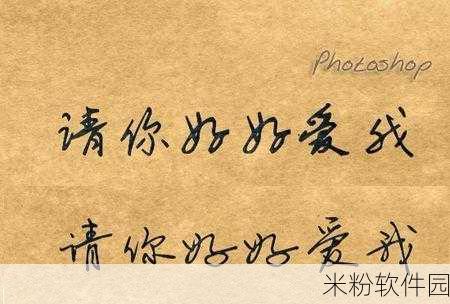 Photoshop
请你好好爱我
请你好好爱我
米粉软件园